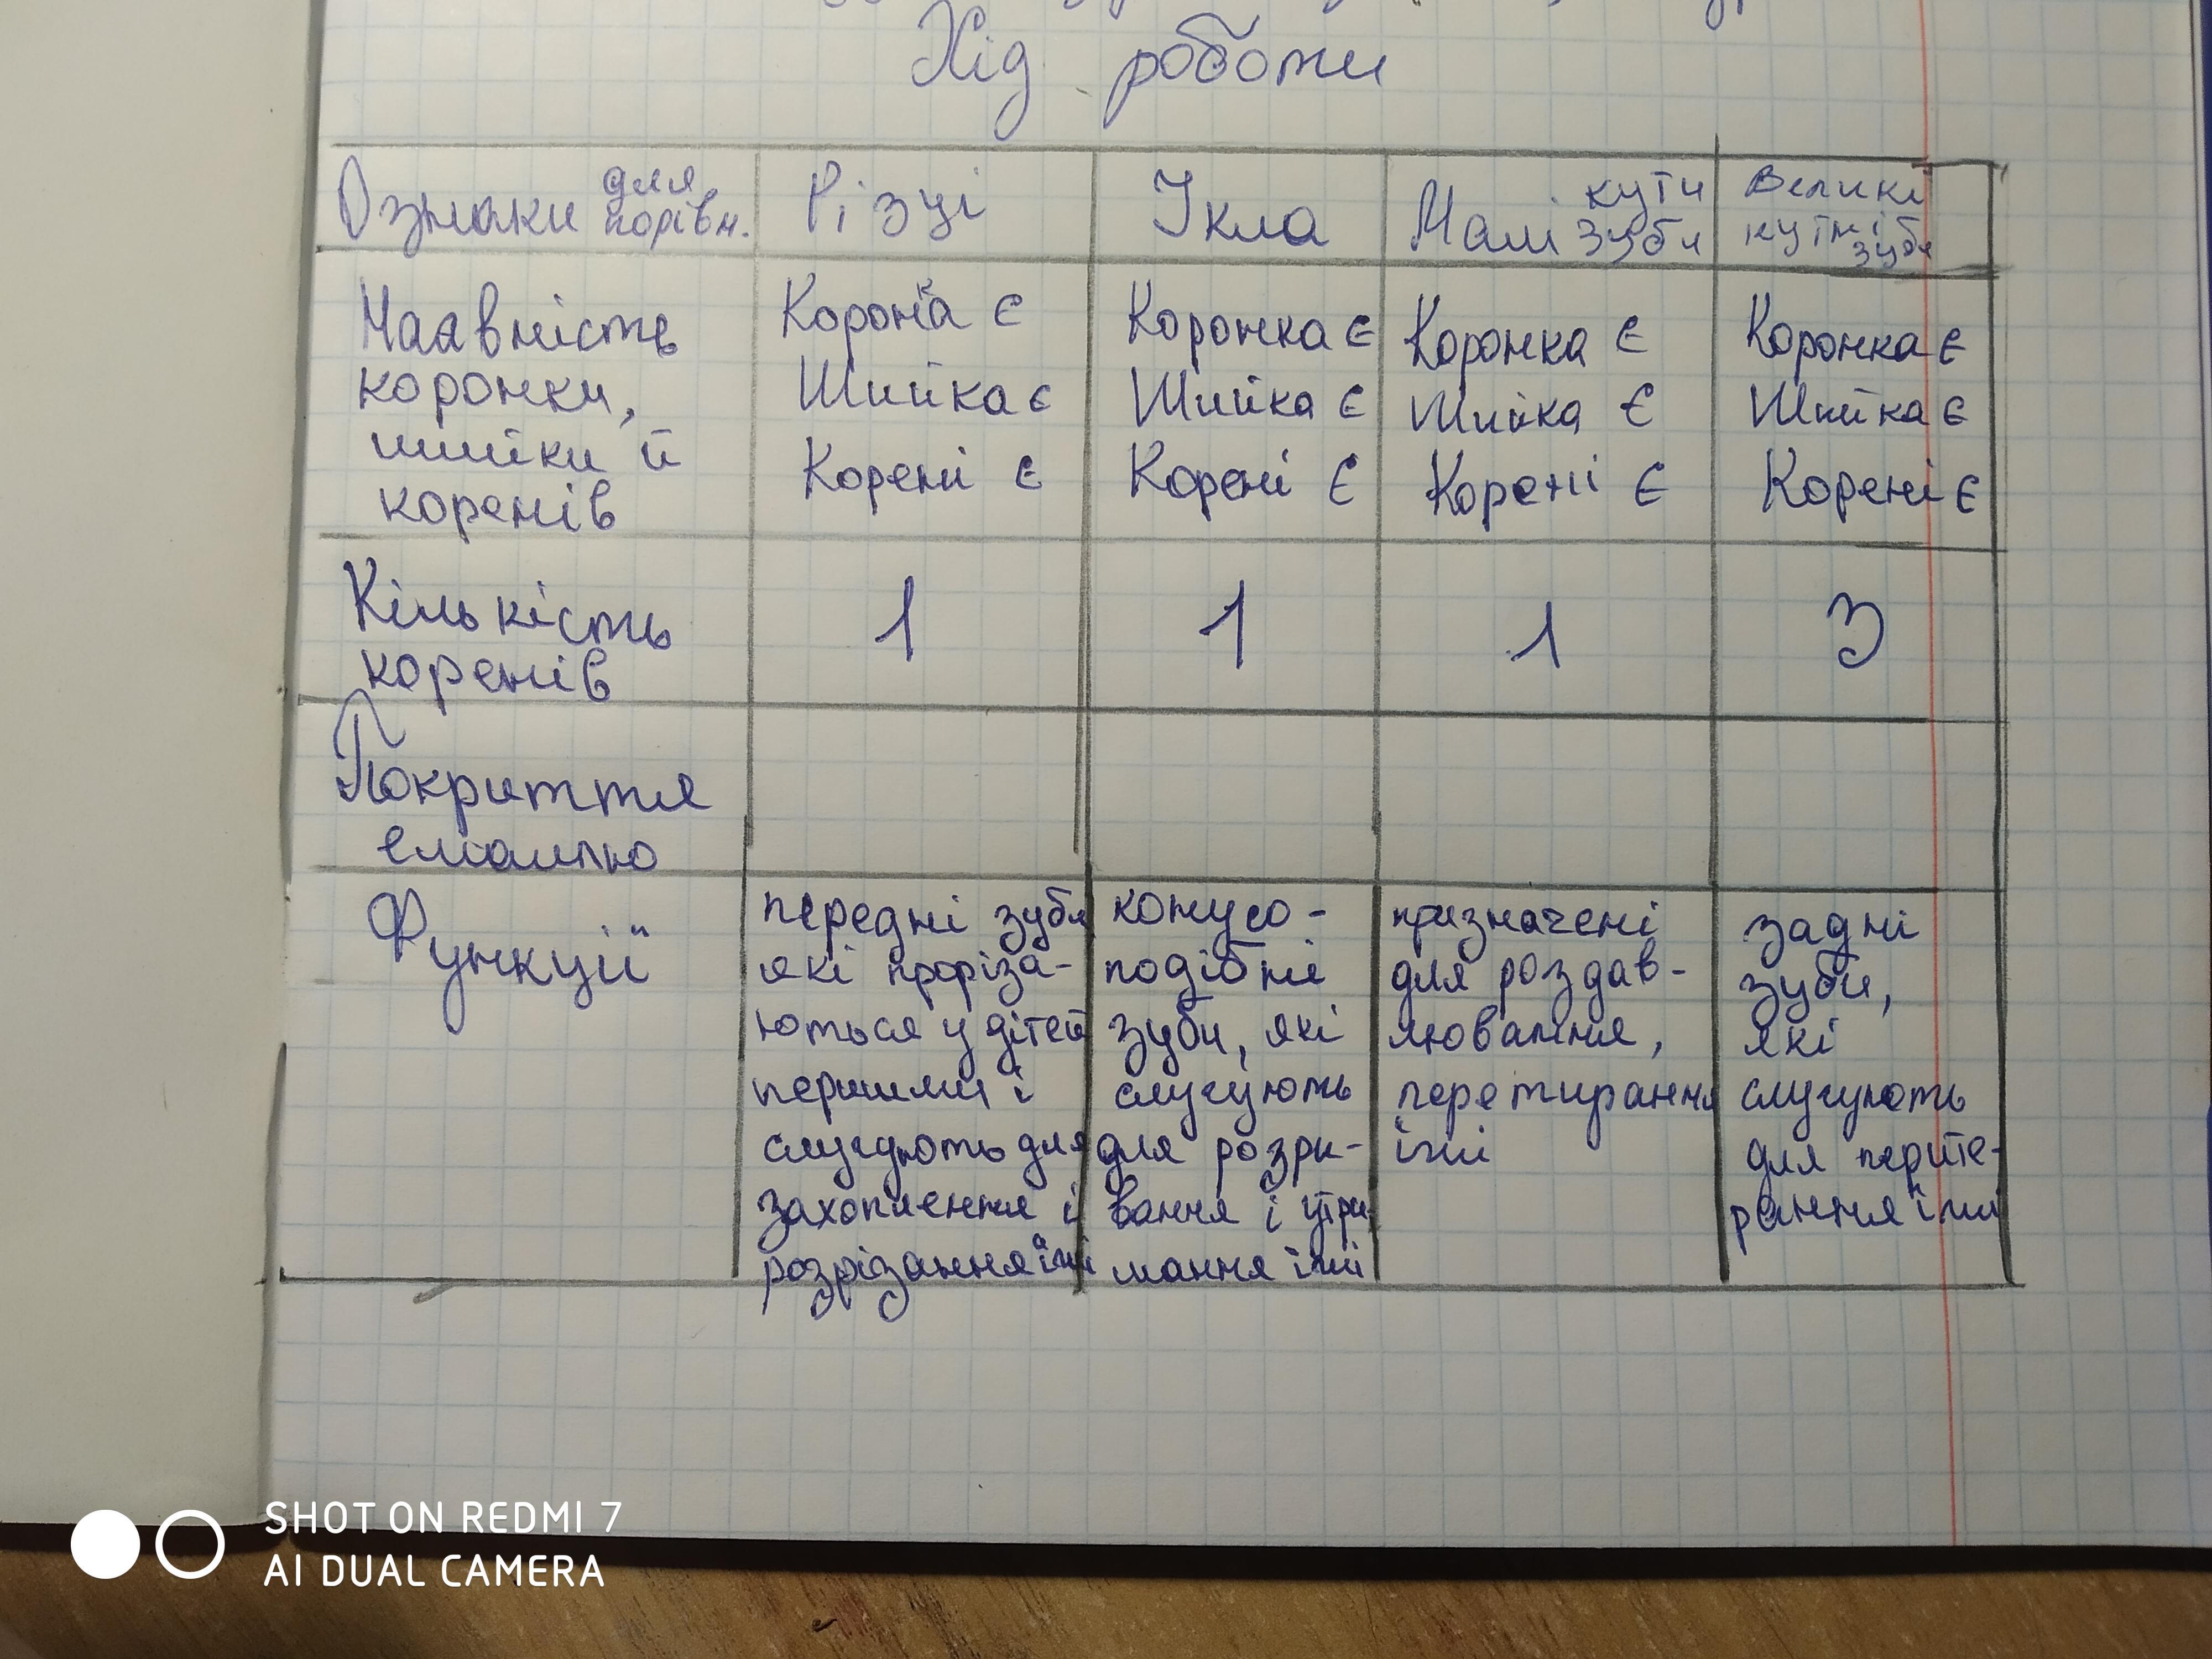 Хід роботи
Ознаки для порівн.
Різці
Ікла
Малі кути зуби
Великі кутні зуби
Наявність
коронки,
шийки й
коренів
Коронка є
Шийка є
Корені є
Коронка є
Шийка є
Корені є
Коронка є
Шийка є
Корені є
Коронка є
Шийка є
Корені є
Кількість
коренів
1
1
1
3
Покриття
емаллю
Функції
передні зуби
які проріза-
ються у дітей
першими і
слугують для
захоплення і
розрізання їжі
конусо-
подібні
зуби, які
слугують
для розри-
вання і утри-
мання їжі
призначені
для роздав-
лювання,
перетирання
їжі
задні
зуби,
які
слугують
для перите-
рання їжі
SHOT ON REDMI 7
AI DUAL CAMERA